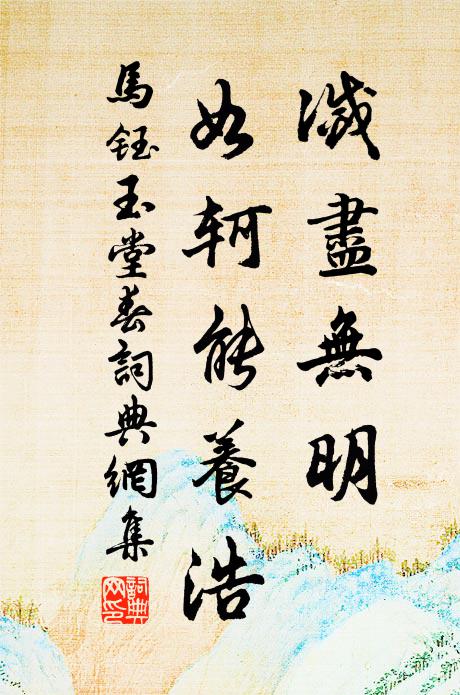 滅盡無明
如軻能養浩
馬鈺玉堂春詞典網集
詞典網印